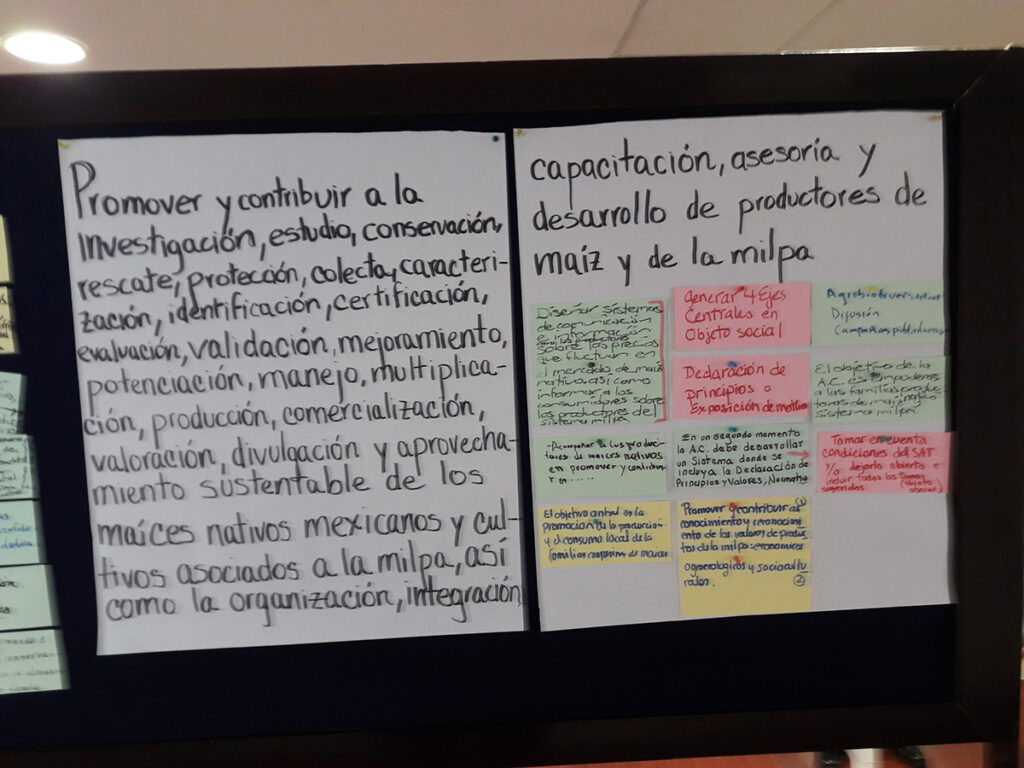 Promover y contribuir a la
investigación, estudio, conservación,
rescate, protección, colecta, caracteri-
zación, identificación, certificación,
evaluación, validación, mejoramiento,
potenciación, manejo, multiplica-
ción, producción, comercialización,
valoración, divulgación y aprovecha-
miento sustentable de los
maíces nativos mexicanos y cul-
tivos asociados a la milpa, así
como la organización, integración
capacitación, asesoría y
desarrollo de productores de
maíz y de la milpa
Diseñar sistemas
de comunicación
e información
sobre los precios
que fluctúan en
el mercado de maíz
nativo, así como
informar a los
consumidores sobre
los productores del
sistema milpa.
generar 4 Ejes
Centrales en
Objeto social
Difusión
Declaración de
principios o
Exposición de
El objetivo de la
A.C. es
a las familias
sistema milpa.
-Acompañar a los produc-
tores de maíces nativos
en promover y contribuir
En un segundo momento
la A.C. debe desarrollar
un Sistema donde se
incluya la Declaración de
Principios y Valores,
Tomar en cuenta
condiciones del SAT
y/o dejarlo abierto e
incluir todos los temas
sugeridos (objeto
social)
El objetivo es la
promoción de la producción
y el consumo local de la
(1)
Promover y contribuir al
conocimiento y reconocimi
ento de los valores de produc
tos de la milpa: económicos
agroecológicos y sociocultu
rales.
(2)